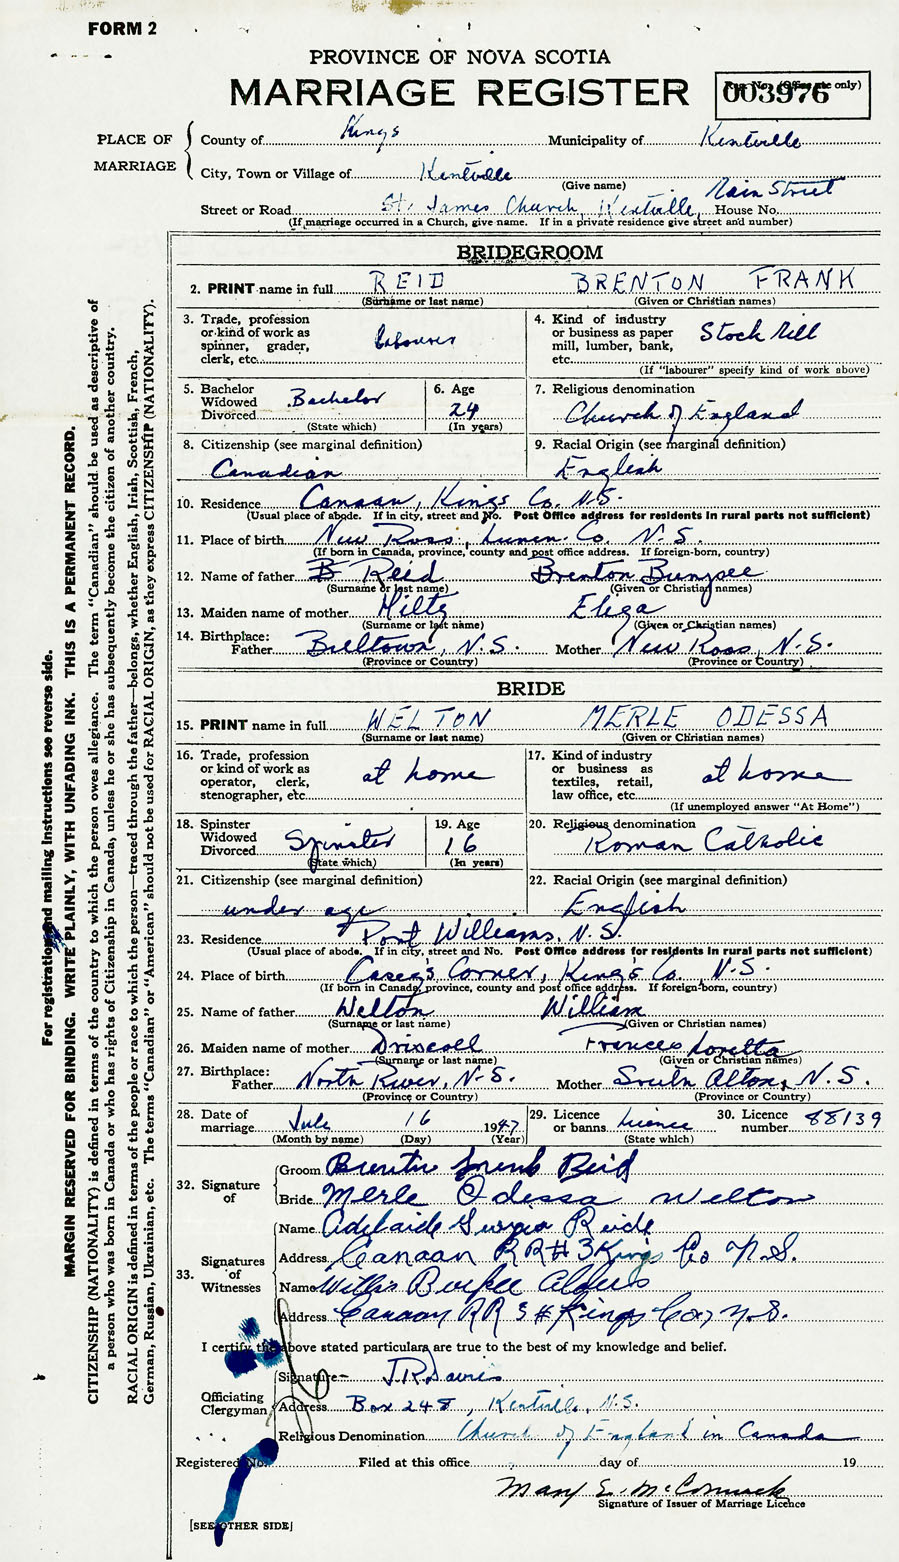 FORM 2
PROVINCE OF NOVA SCOTIA
MARRIAGE REGISTER
Reg. No. (Office use only)
003976
PLACE OF MARRIAGE
County of Kings Municipality of Kentville
City, Town or Village of Kentville
(Give name)
Main Street
Street or Road St. James Church, Kentville, House No.
(If marriage occurred in a Church, give name. If in a private residence give street and number)
BRIDEGROOM
2. PRINT name in full REID BRENTON FRANK
(Surname or last name) (Given or Christian names)
3. Trade, profession or kind of work as spinner, grader, clerk, etc. Labourer
4. Kind of industry or business as paper mill, lumber, bank, etc. Stock Mill
(If "labourer" specify kind of work above)
5. Bachelor Widowed Divorced Bachelor
(State which)
6. Age 24
(In years)
7. Religious denomination
Church of England
8. Citizenship (see marginal definition)
Canadian
9. Racial Origin (see marginal definition)
English
10. Residence Canaan, Kings Co. N.S.
(Usual place of abode. If in city, street and No. Post Office address for residents in rural parts not sufficient)
11. Place of birth New Ross, Lunen. Co. N.S.
(If born in Canada, province, county and post office address. If foreign-born, country)
12. Name of father B Reid Brenton
(Surname or last name) (Given or Christian names)
13. Maiden name of mother Hiltz Eliza
(Surname or last name) (Given or Christian names)
14. Birthplace: Father Belltown, N.S. Mother New Ross, N.S.
(Province or Country) (Province or Country)
BRIDE
15. PRINT name in full WELTON MERLE ODESSA
(Surname or last name) (Given or Christian names)
16. Trade, profession or kind of work as operator, clerk, stenographer, etc. at home
17. Kind of industry or business as textiles, retail, law office, etc. at home
(If unemployed answer "At Home")
18. Spinster Widowed Divorced Spinster
(State which)
19. Age 16
(In years)
20. Religious denomination
Roman Catholic
21. Citizenship (see marginal definition)
under age
22. Racial Origin (see marginal definition)
English
23. Residence Port Williams, N.S.
(Usual place of abode. If in city, street and No. Post Office address for residents in rural parts not sufficient)
24. Place of birth Casey's Corner, King's Co. N.S.
(If born in Canada, province, county and post office address. If foreign-born, country)
25. Name of father Welton William
(Surname or last name) (Given or Christian names)
26. Maiden name of mother Driscoll Frances Loretta
(Surname or last name) (Given or Christian names)
27. Birthplace: Father North River, N.S. Mother South Alton, N.S.
(Province or Country) (Province or Country)
28. Date of marriage July 16 1947
(Month by name) (Day) (Year)
29. Licence or banns Licence
(State which)
30. Licence number 88139
32. Signature of
Groom Brenton Frank Reid
Bride Merle Odessa Welton
33. Signatures of Witnesses
Name Adelaide Georgia Reide
Address Canaan RR# 3 Kings Co N.S.
Name Willis Burpee
Address Canaan RR 3 # Kings Co, N.S.
I certify the above stated particulars are true to the best of my knowledge and belief.
Officiating Clergyman
Signature J.R. Davies
Address Box 248, Kentville, N.S.
Religious Denomination Church of England in Canada
Registered No. Filed at this office day of 19
Mary E. McCormack
Signature of Issuer of Marriage Licence
[SEE OTHER SIDE]
For registration and mailing instructions see reverse side.
MARGIN RESERVED FOR BINDING. WRITE PLAINLY, WITH UNFADING INK. THIS IS A PERMANENT RECORD.
CITIZENSHIP (NATIONALITY) is defined in terms of the country to which the person owes allegiance. The term "Canadian" should be used as descriptive of
a person who was born in Canada or who has rights of Citizenship in Canada, unless he or she has subsequently become the citizen of another country.
RACIAL ORIGIN is defined in terms of the people or race to which the person—traced through the father—belongs, whether English, Irish, Scottish, French,
German, Russian, Ukrainian, etc. The terms "Canadian" or "American" should not be used for RACIAL ORIGIN, as they express CITIZENSHIP (NATIONALITY).